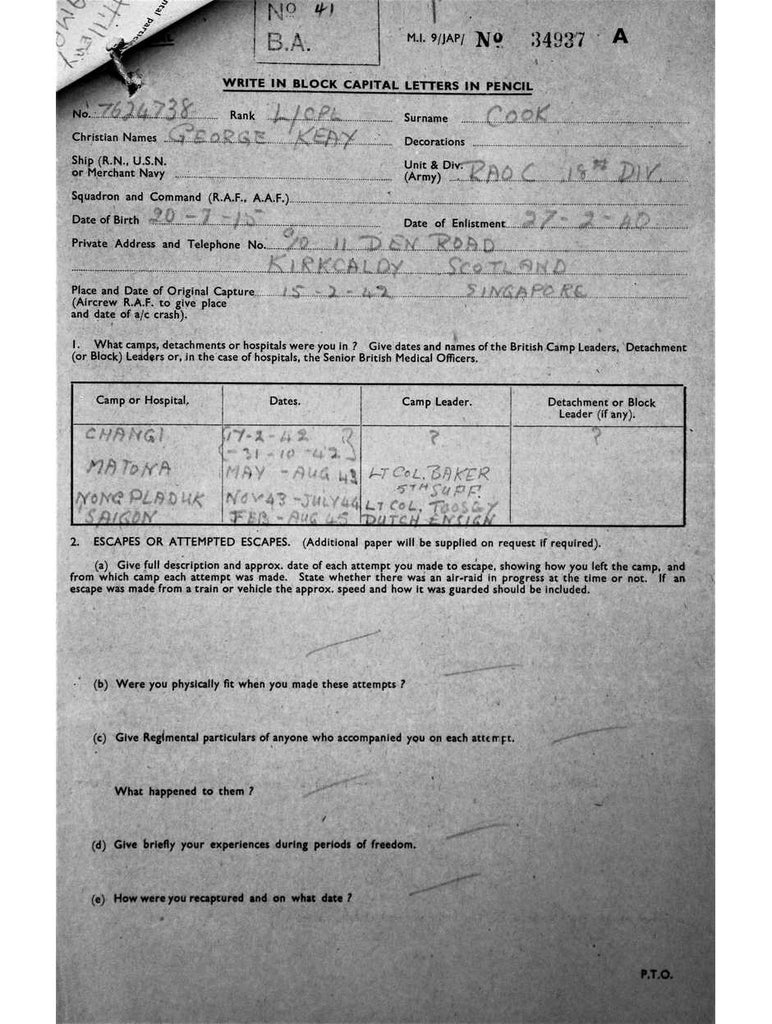 No 41
B.A.
M.I. 9/JAP/ No 34937 A
WRITE IN BLOCK CAPITAL LETTERS IN PENCIL
No. 7624738 Rank L/CPL Surname COOK
Christian Names GEORGE KEAY Decorations
Ship (R.N., U.S.N. or Merchant Navy
Unit & Div. (Army) RAOC 18TH DIV.
Squadron and Command (R.A.F., A.A.F.)
Date of Birth 20-7-15 Date of Enlistment 27-2-40
Private Address and Telephone No. c/o 11 DEN ROAD
KIRKCALDY SCOTLAND
Place and Date of Original Capture 15-2-42 SINGAPORE
(Aircrew R.A.F. to give place
and date of a/c crash).
1. What camps, detachments or hospitals were you in ? Give dates and names of the British Camp Leaders, Detachment
(or Block) Leaders or, in the case of hospitals, the Senior British Medical Officers.
Camp or Hospital. Dates. Camp Leader. Detachment or Block
Leader (if any).
CHANGI {17-2-42 ? ?
{-31-10-42}
MATONA MAY - AUG 43 LT COL. BAKER
5TH SUFF.
NONG PLADUK NOV 43 - JULY 44 LT COL. TOOSEY
SAIGON FEB - AUG 45 DUTCH ENSIGN
2. ESCAPES OR ATTEMPTED ESCAPES. (Additional paper will be supplied on request if required).
(a) Give full description and approx. date of each attempt you made to escape, showing how you left the camp, and
from which camp each attempt was made. State whether there was an air-raid in progress at the time or not. If an
escape was made from a train or vehicle the approx. speed and how it was guarded should be included.
(b) Were you physically fit when you made these attempts ?
(c) Give Regimental particulars of anyone who accompanied you on each attempt.
What happened to them ?
(d) Give briefly your experiences during periods of freedom.
(e) How were you recaptured and on what date ?
P.T.O.